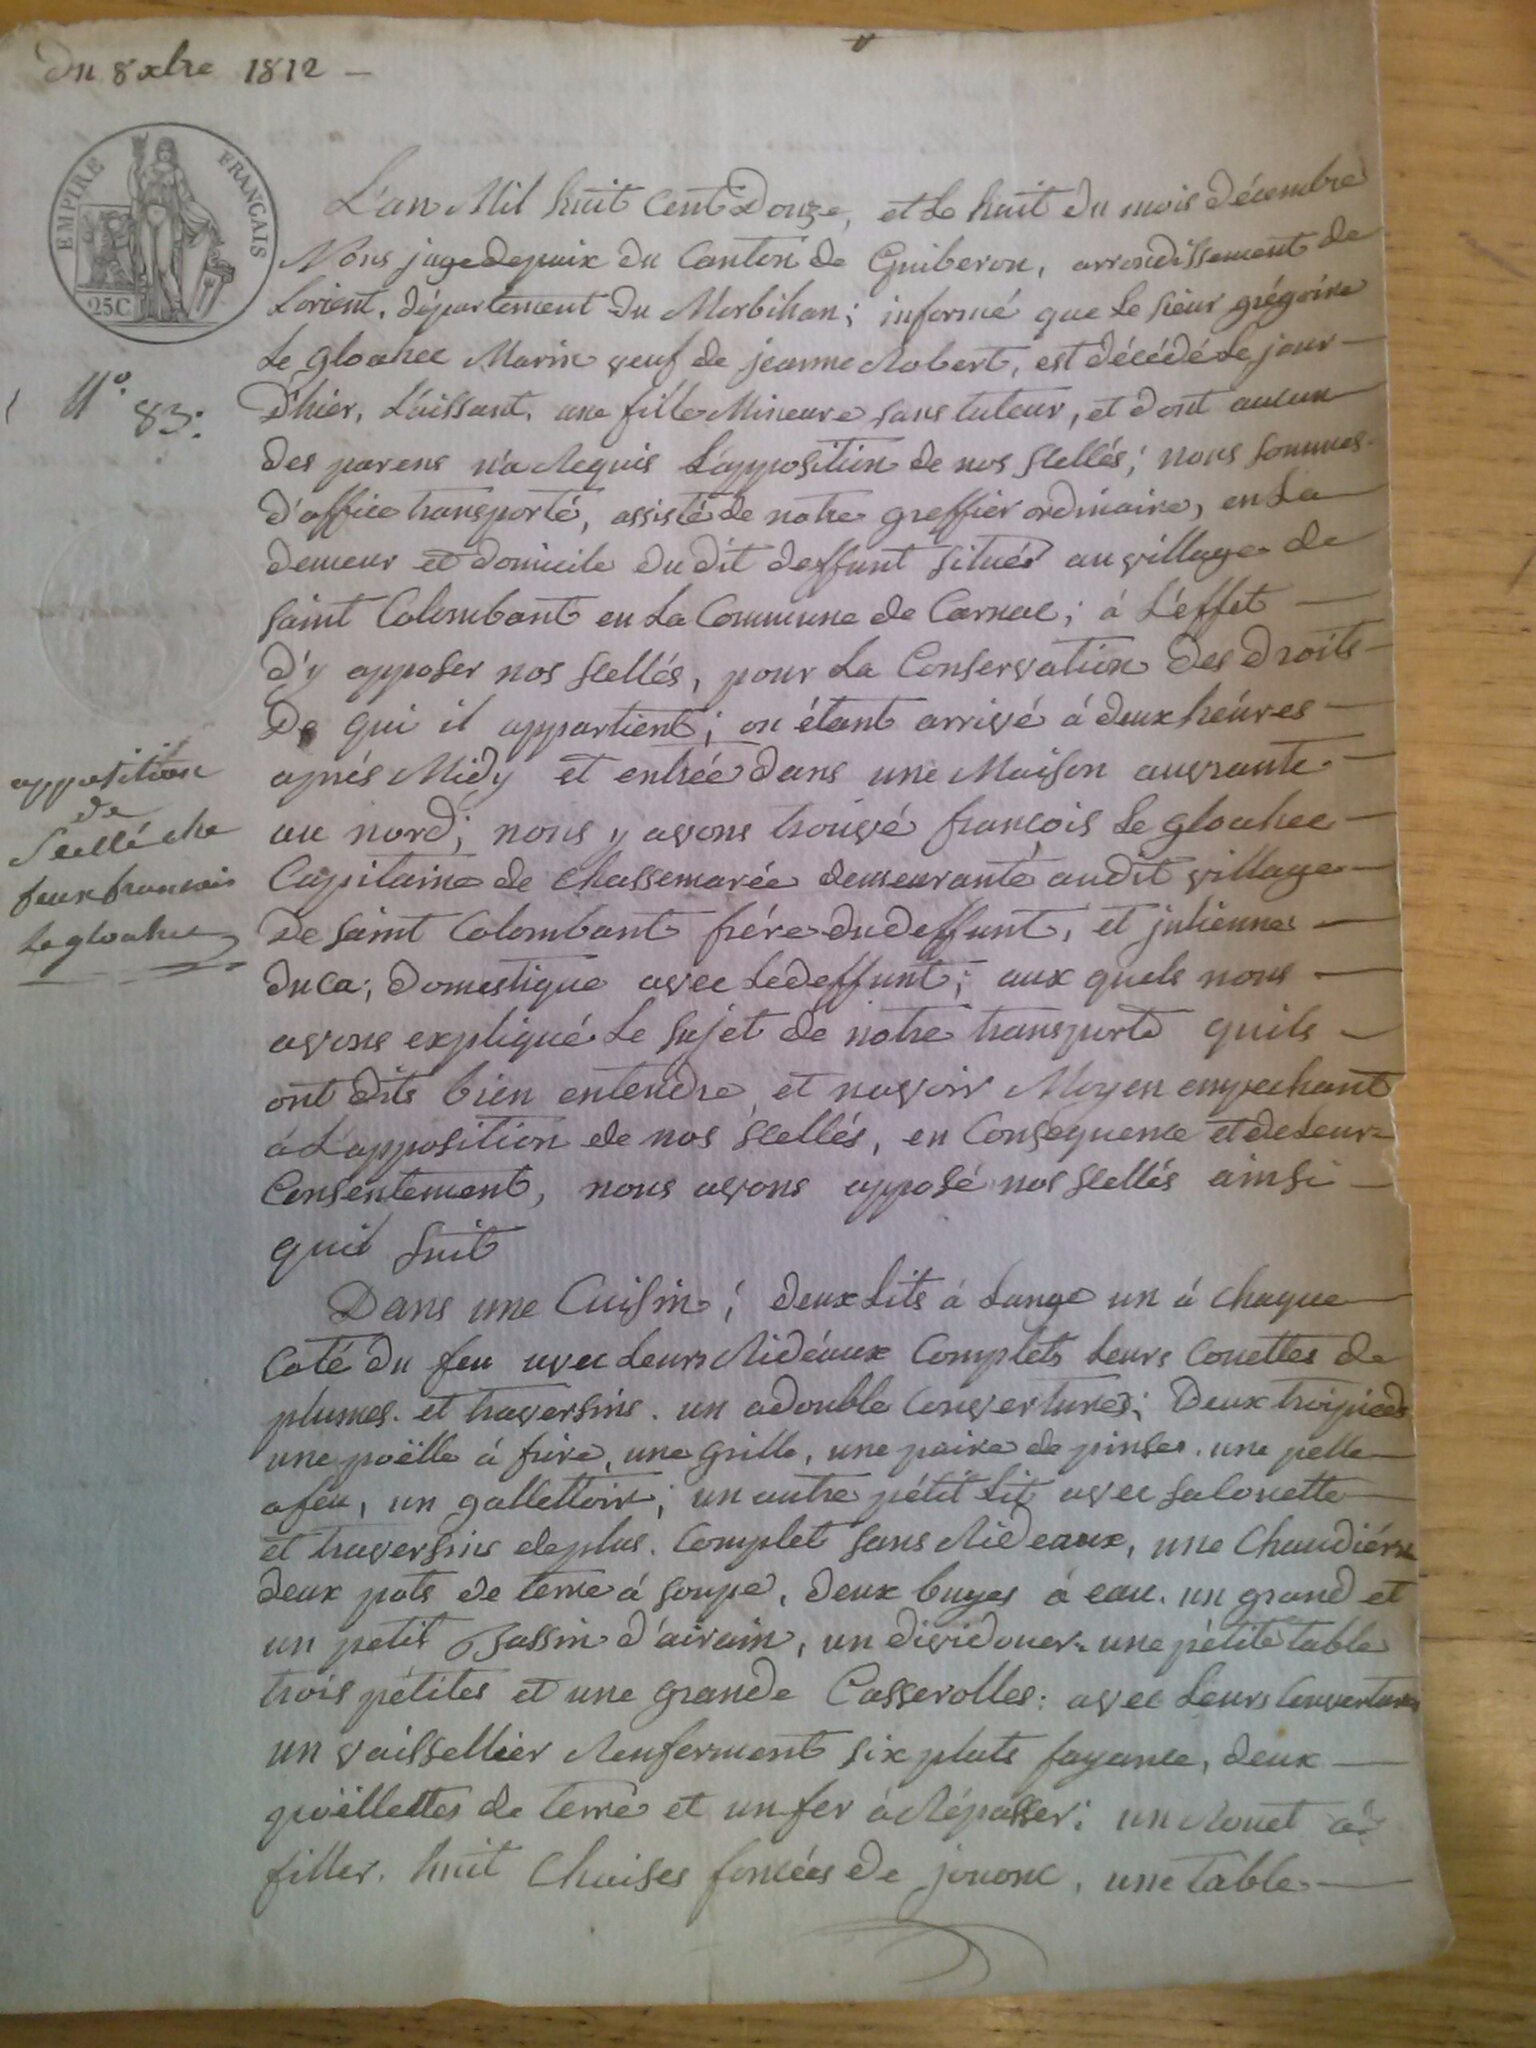 du 8 xbre 1812 –
EMPIRE FRANÇAIS
25C
N° 83.
apposition
de
Scellé che
feux francais
Le gloahec
L'an Mil huit Cent Douze, et le huit du mois décembre
Nous juge de paix du Canton de Quiberon, arrondissement de
Lorient, département du Morbihan; informé que le sieur grégoire
Le gloahec Marin veuf de jeanne Robert, est décédé le jour –
d'hier, laissant, une fille Mineure sans tuteur, et dont aucun
des parens n'a Requis l'apposition de nos scellés; nous sommes
d'office transporté, assisté de notre greffier ordinaire, en la
demeur et domicile du dit deffunt situés au village de
saint Colombant en la Commune de Carnac; à l'éffet –
d'y apposer nos scellés, pour la Conservation des droits –
De qui il appartient; on étant arrivé à deux héures –
aprés Midy et entrée dans une Maison auvrante –
au nord; nous y avons trouvé françois Le gloahec –
Capitaine de chassemarée demeurante audit village –
de saint Colombant frére du deffunt, et julienne –
duca, domestique avec le deffunt; aux quels nous –
avons expliqué le sujet de notre transporte quils –
ont dits bien entendre, et navoir Moyen empechant
à l'apposition de nos scellés, en Consequence et de leur
Consentement, nous avons apposé nos scellés ainsi –
quil suit
Dans une Cuisine; deux lits à lange un à chaque
coté du feu avec leurs Ridéaux Complets leurs Couettes de
plumes. et traversins. un adouble Couvertures; Deux troipieds
une poëlle à frire, une grille, une paire de pinses. une pelle
a feu, un gallettoire; un autre pétit lit avec sa Couette
et traversins de plus. Complet sans Rideaux, une Chaudiére
deux pots de terre à soupe, deux buyes à eau. un grand et
un petit Bassin d'airain, un dividouer. une pétite table
trois pétites et une grande Casserolles: avec leurs Couvertures
un vaissellier Renferment six plats fayance, deux –
poëllettes de terre et un fer à Répasser; un Rouet à
filler. huit Chaises foncées de jounc, une table –